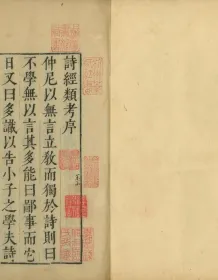 詩經類考序
仲尼以無言立教而獨於詩則曰
不學無以言其多能曰鄙事而它
日又曰多識以告小子之學夫詩